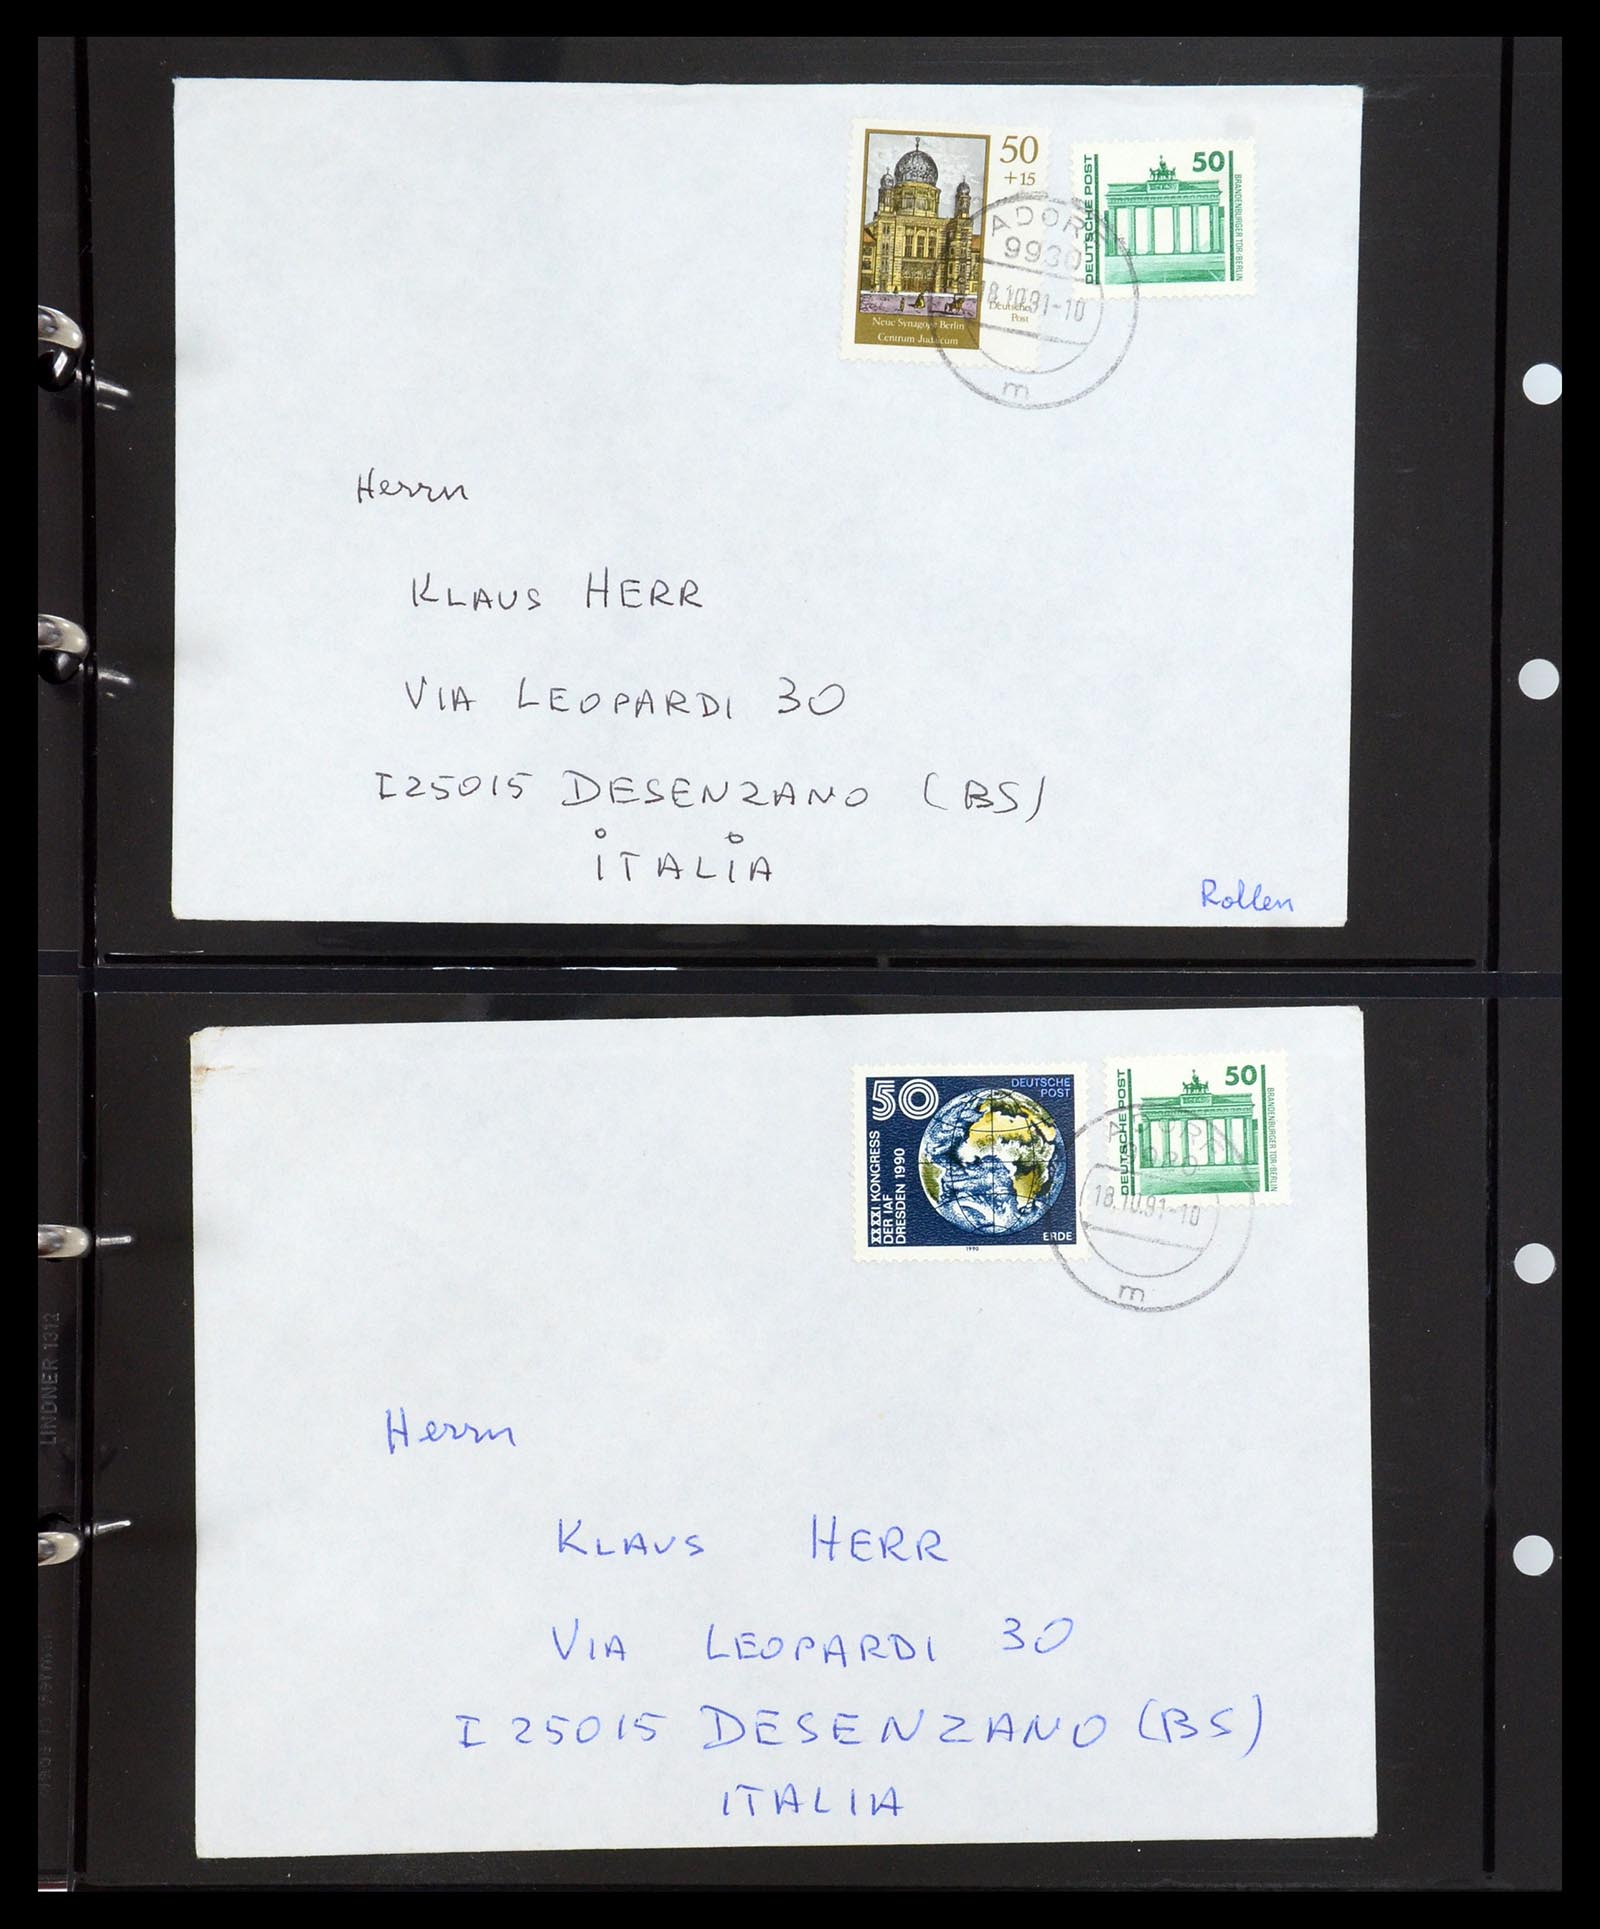 50
+15
Neue Synagoge Berlin
Centrum Judaicum
Deutsche
Post
DEUTSCHE POST
50
BRANDENBURGER TOR/BERLIN
ADORF
9930
18.10.91-10
m
Herrn
KLAUS HERR
VIA LEOPARDI 30
I25015 DESENZANO (BS)
ITALIA
Rollen
50
DEUTSCHE
POST
XXXXI KONGRESS
DER IAF
DRESDEN 1990
ERDE
1990
DEUTSCHE POST
50
BRANDENBURGER TOR/BERLIN
ADORF
9930
18.10.91-10
m
Herrn
KLAUS HERR
VIA LEOPARDI 30
I 25015 DESENZANO (BS)
ITALIA
LINDNER 1312